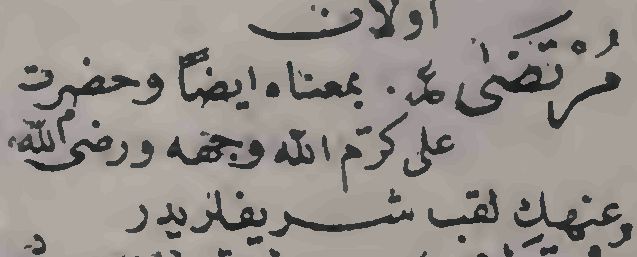 اولان
مُرْتَضٰى عم. بمعناه ايضاً وحضرت
على كرّم الله وجهه ورضى الله
عنهك لقب شريفلريدر